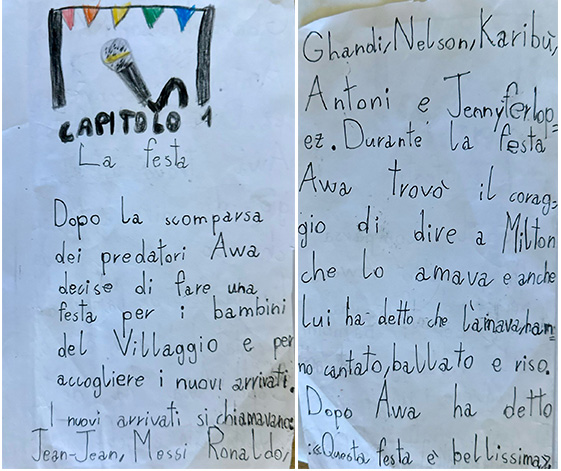 CAPITOLO 1
La festa
Dopo la scomparsa
dei predatori Awa
decise di fare una
festa per i bambini
del Villaggio e per
accogliere i nuovi arrivati.
I nuovi arrivati si chiamavano:
Jean-Jean, Messi Ronaldo,
Ghandi, Nelson, Karibù,
Antoni e Jennyferlop=
ez. Durante la festa
Awa trovò il corag=
gio di dire a Milton
che lo amava e anche
lui ha detto che l'amava, han=
no cantato, ballato e riso.
Dopo Awa ha detto
:«Questa festa è bellissima».